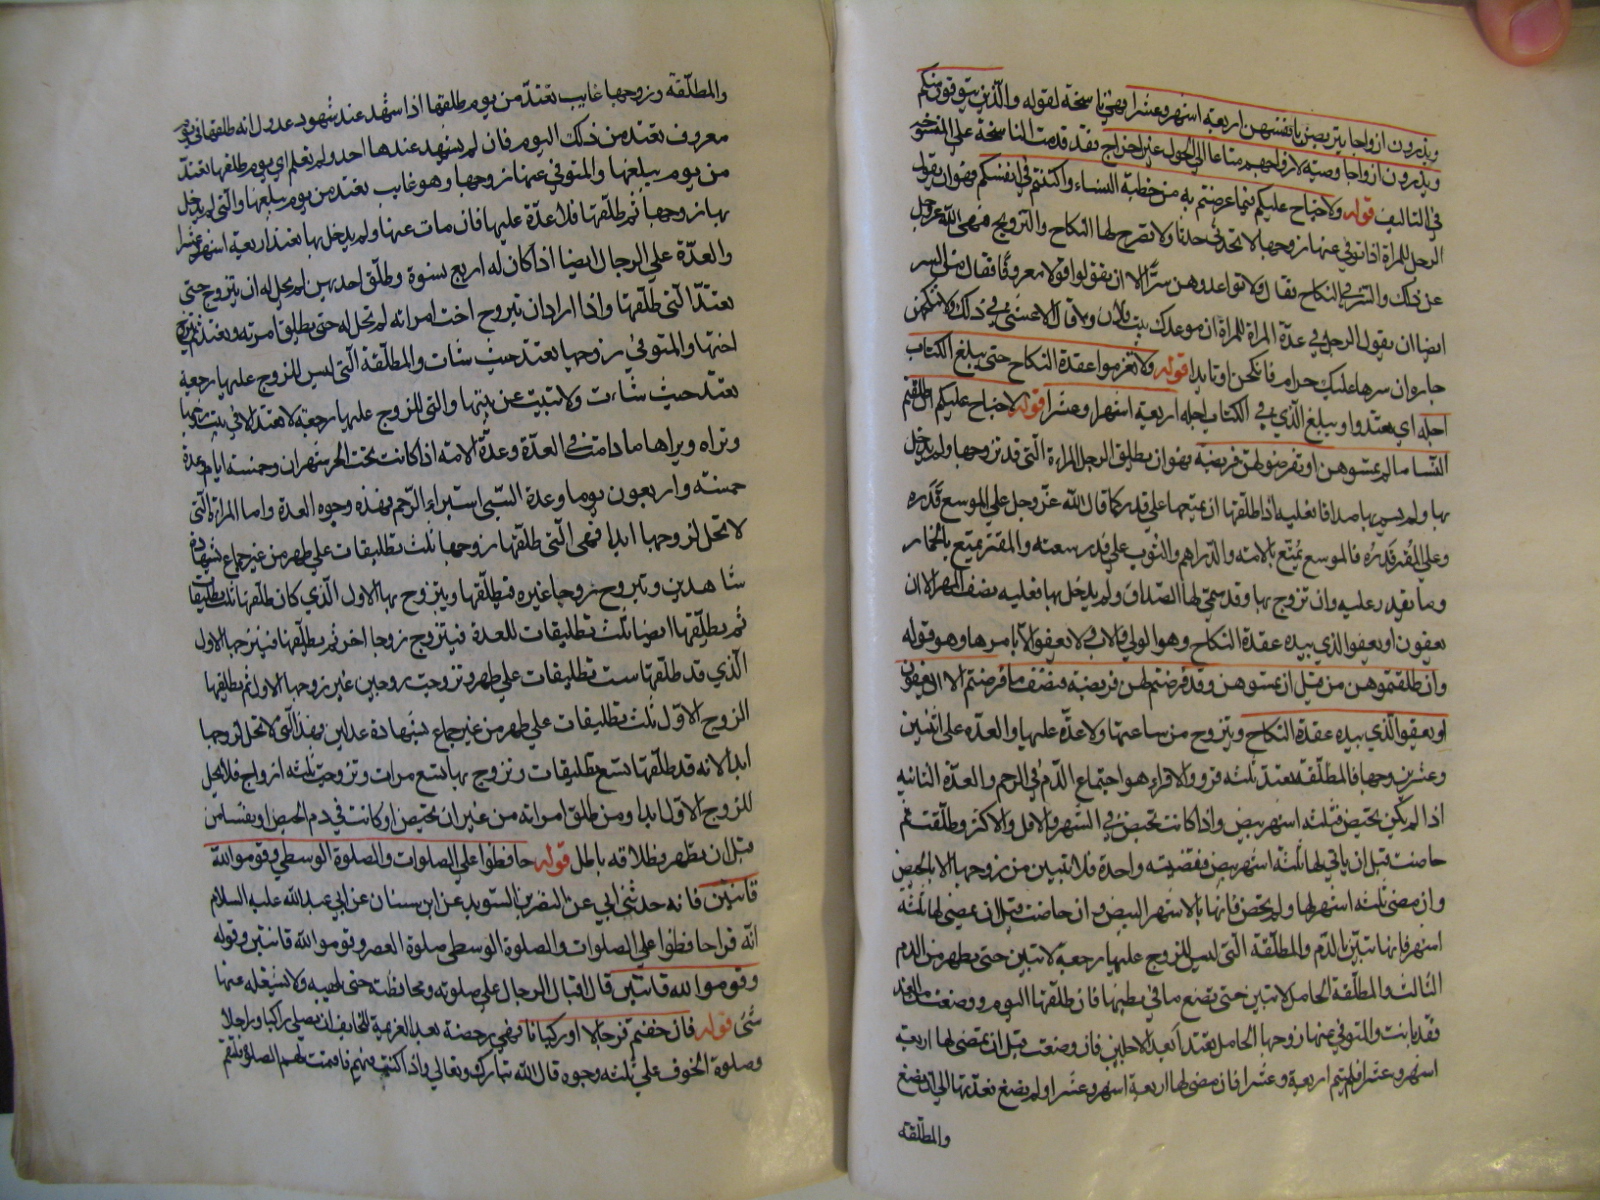 ويذرون ازواجا يتربصن بانفسهن اربعة اشهر وعشرا وهي ناسخة لقوله والذين يتوفون منكم
ويذرون ازواجا وصية لازواجهم متاعا الي الحول غير اخراج فقد قدمت الناسخة علي المنسوخة
في التاليف قوله ولا جناح عليكم فيما عرضتم به من خطبة النساء او اكننتم في انفسكم فهو ان يقول
الرجل للمراة اذا توفي عنها زوجها لا تحدثي حدثا ولا يصرح لها النكاح والتزويج فنهي الله عز وجل
عن ذلك والسر في النكاح فقال ولا تواعدوهن سرا الا ان تقولوا قولا معروفا فقال من السر
ايضا ان يقول الرجل في عدة المراة للمراة ان موعدك بيت فلان وقال الاعشي في ذلك ولا تنكحن
جارة ان سرها عليك حرام فانكحن او تابدا قوله ولا تعزموا عقدة النكاح حتي يبلغ الكتاب
اجله اي يعتدوا ويبلغ الذي في الكتاب اجله اربعة اشهر وعشرا قوله لا جناح عليكم ان طلقتم
النسا ما لم تمسوهن او تفرضوا لهن فريضة فهو ان يطلق الرجل المراة التي قد تزوجها ولم يدخل
بها ولم يسم لها صداقا فعليه اذا طلقها ان يمتعها علي قدر كما قال الله عز وجل علي الموسع قدره
وعلي المقتر قدره فالموسع يمتع بالامة والدراهم والثوب علي قدر سعته والمقتر يمتع بالخمار
وما يقدر عليه وان تزوج بها وقد سمي لها الصداق ولم يدخل بها فعليه نصف المهر الا ان
يعفون او يعفوا الذي بيده عقدة النكاح وهو الولي والاب ولا يعفوا الا بامرها وهو قوله
وان طلقتموهن من قبل ان تمسوهن وقد فرضتم لهن فريضة فنصف ما فرضتم الا ان يعفون
او يعفوا الذي بيده عقدة النكاح وتتزوج من ساعتها ولا عدة عليها والعده علي اثنين
وعشرين وجها فالمطلقه تعتد ثلثه قروء والاقراء هو اجتماع الدم في الرحم والعدة الثانيه
اذا لم تكن تحيض فثلثه اشهر بيض واذا كانت تحيض في الشهر والاقل والاكثر وطلقت ثم
حاضت قبل ان ياتي لها ثلثة اشهر بيض حيضة واحدة فلا تبين من زوجها الا بالحيض
وان مضي ثلثه اشهر لها ولم تحض فانها بالاشهر البيض وان حاضت قبل ان يمضي لها ثلثة
اشهر فانها تبين بالدم والمطلقة التي ليس للزوج عليها رجعة لا تبين حتي تطهر من الدم
الثالث والمطلقة الحامل لا تبين حتي تضع ما في بطنها فان طلقها اليوم ووضعت من الغد
فقد بانت والمتوفي عنها زوجها الحامل تعتد ابعد الاجلين فان وضعت قبل ان تمضي لها اربعة
اشهر وعشرا فلتتم اربعة وعشرا فان مضي لها اربعة اشهر وعشرا ولم تضع فعدتها الي ان تضع
والمطلقة
والمطلقة وزوجها غايب تعتد من يوم طلقها اذا شهد عند شهود عدول انه طلقها في يوم
معروف تعتد من ذلك اليوم فان لم يشهد عندها احد ولم تعلم اي يوم طلقها تعتد
من يوم يبلغها والمتوفي عنها زوجها وهو غايب تعتد من يوم يبلغها والتي لم يدخل
بها زوجها ثم طلقها فلا عدة عليها فان مات عنها ولم يدخل بها تعتد اربعة اشهر وعشرا
والعدة علي الرجال ايضا اذا كان له اربع نسوة وطلق احديهن لم يحل له ان يتزوج حتي
تعتد التي طلقها واذا اراد ان يتزوج اخت امراته لم تحل له حتي يطلق امرته وتعتد ثم يتزوج
اختها والمتوفي زوجها تعتد حيث شات والمطلقة التي ليس للزوج عليها رجعة
تعتد حيث شاءت ولا تبيت عن بيتها والتي للزوج عليها رجعة لا تعتد الا في بيت زوجها
وتراه ويراها ما دامت في العدة وعدة الامة اذا كانت تحت الحر شهران وخمسة ايام وعدة
خمسة واربعون يوما وعدة السبي استبراء الرحم فهذه وجوه العدة واما المراة التي
لا تحل لزوجها ابدا فهي التي طلقها زوجها ثلث تطليقات علي طهر من غير جماع بشهادة
شاهدين وتزوج زوجا غيره فيطلقها ويتزوج بها الاول الذي كان طلقها ثلث تطليقات
ثم يطلقها ايضا ثلث تطليقات للعدة فيتزوج زوجا اخر ثم يطلقها فيتزوجها الاول
الذي قد طلقها ست تطليقات علي طهر وتزوجت زوجين غير زوجها الاول ثم يطلقها
الزوج الاول ثلث تطليقات علي طهر من غير جماع بشهادة عدلين فهذه التي لا تحل لزوجها
ابدا لانه قد طلقها تسع تطليقات وتزوج بها تسع مرات وتزوجت ثلثة ازواج فلا تحل
للزوج الاول ابدا ومن طلق امراته من غير ان تحيض او كانت في دم الحيض او نفسا من
قبل ان تطهر فطلاقه باطل قوله حافظوا علي الصلوات والصلوة الوسطي وقوموا لله
قانتين فانه حدثني ابي عن النضر بن السويد عن ابن سنان عن ابي عبد الله عليه السلام
انه قرا حافظوا علي الصلوات والصلوة الوسطي صلوة العصر وقوموا لله قانتين وقوله
وقوموا لله قانتين قال اقبال الرجال علي صلوته ومحافظته حتي لا يلهيه ولا يشغله عنها
شئ قوله فان خفتم فرجالا او ركبانا فهي رخصة بعد العزيمة للخايف ان يصلي راكبا وراجلا
وصلوة الخوف علي ثلثه وجوه قال الله تبارك وتعالي واذا كنت فيهم فاقمت لهم الصلوة فلتقم